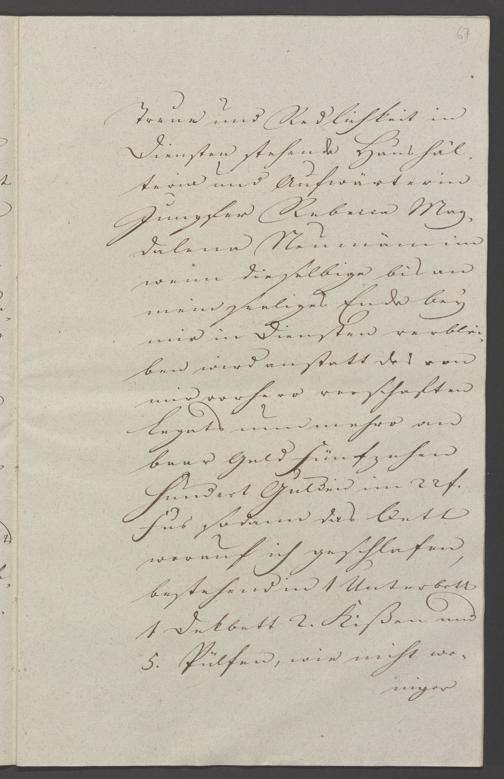 67
Treue und Redlichkeit in
Diensten stehende Haushäl-
terin und Aufwärterin
Jungfer Rebecca Mag-
dalena Neumännin
wenn dieselbige bis an
mein seeliges Ende bey
mir in Diensten verblei-
ben wird anstatt des von
mir vorhero verschafften
Legats nunmehro an
baar Geld Fünfzehen
Hundert Gulden im 22 f.
Fus sodann das Bett
worauf ich geschlafen,
bestehend in 1 Unterbett
1 Dekbett 2. Kißen und
5. Pülfen, wie nicht we-
niger